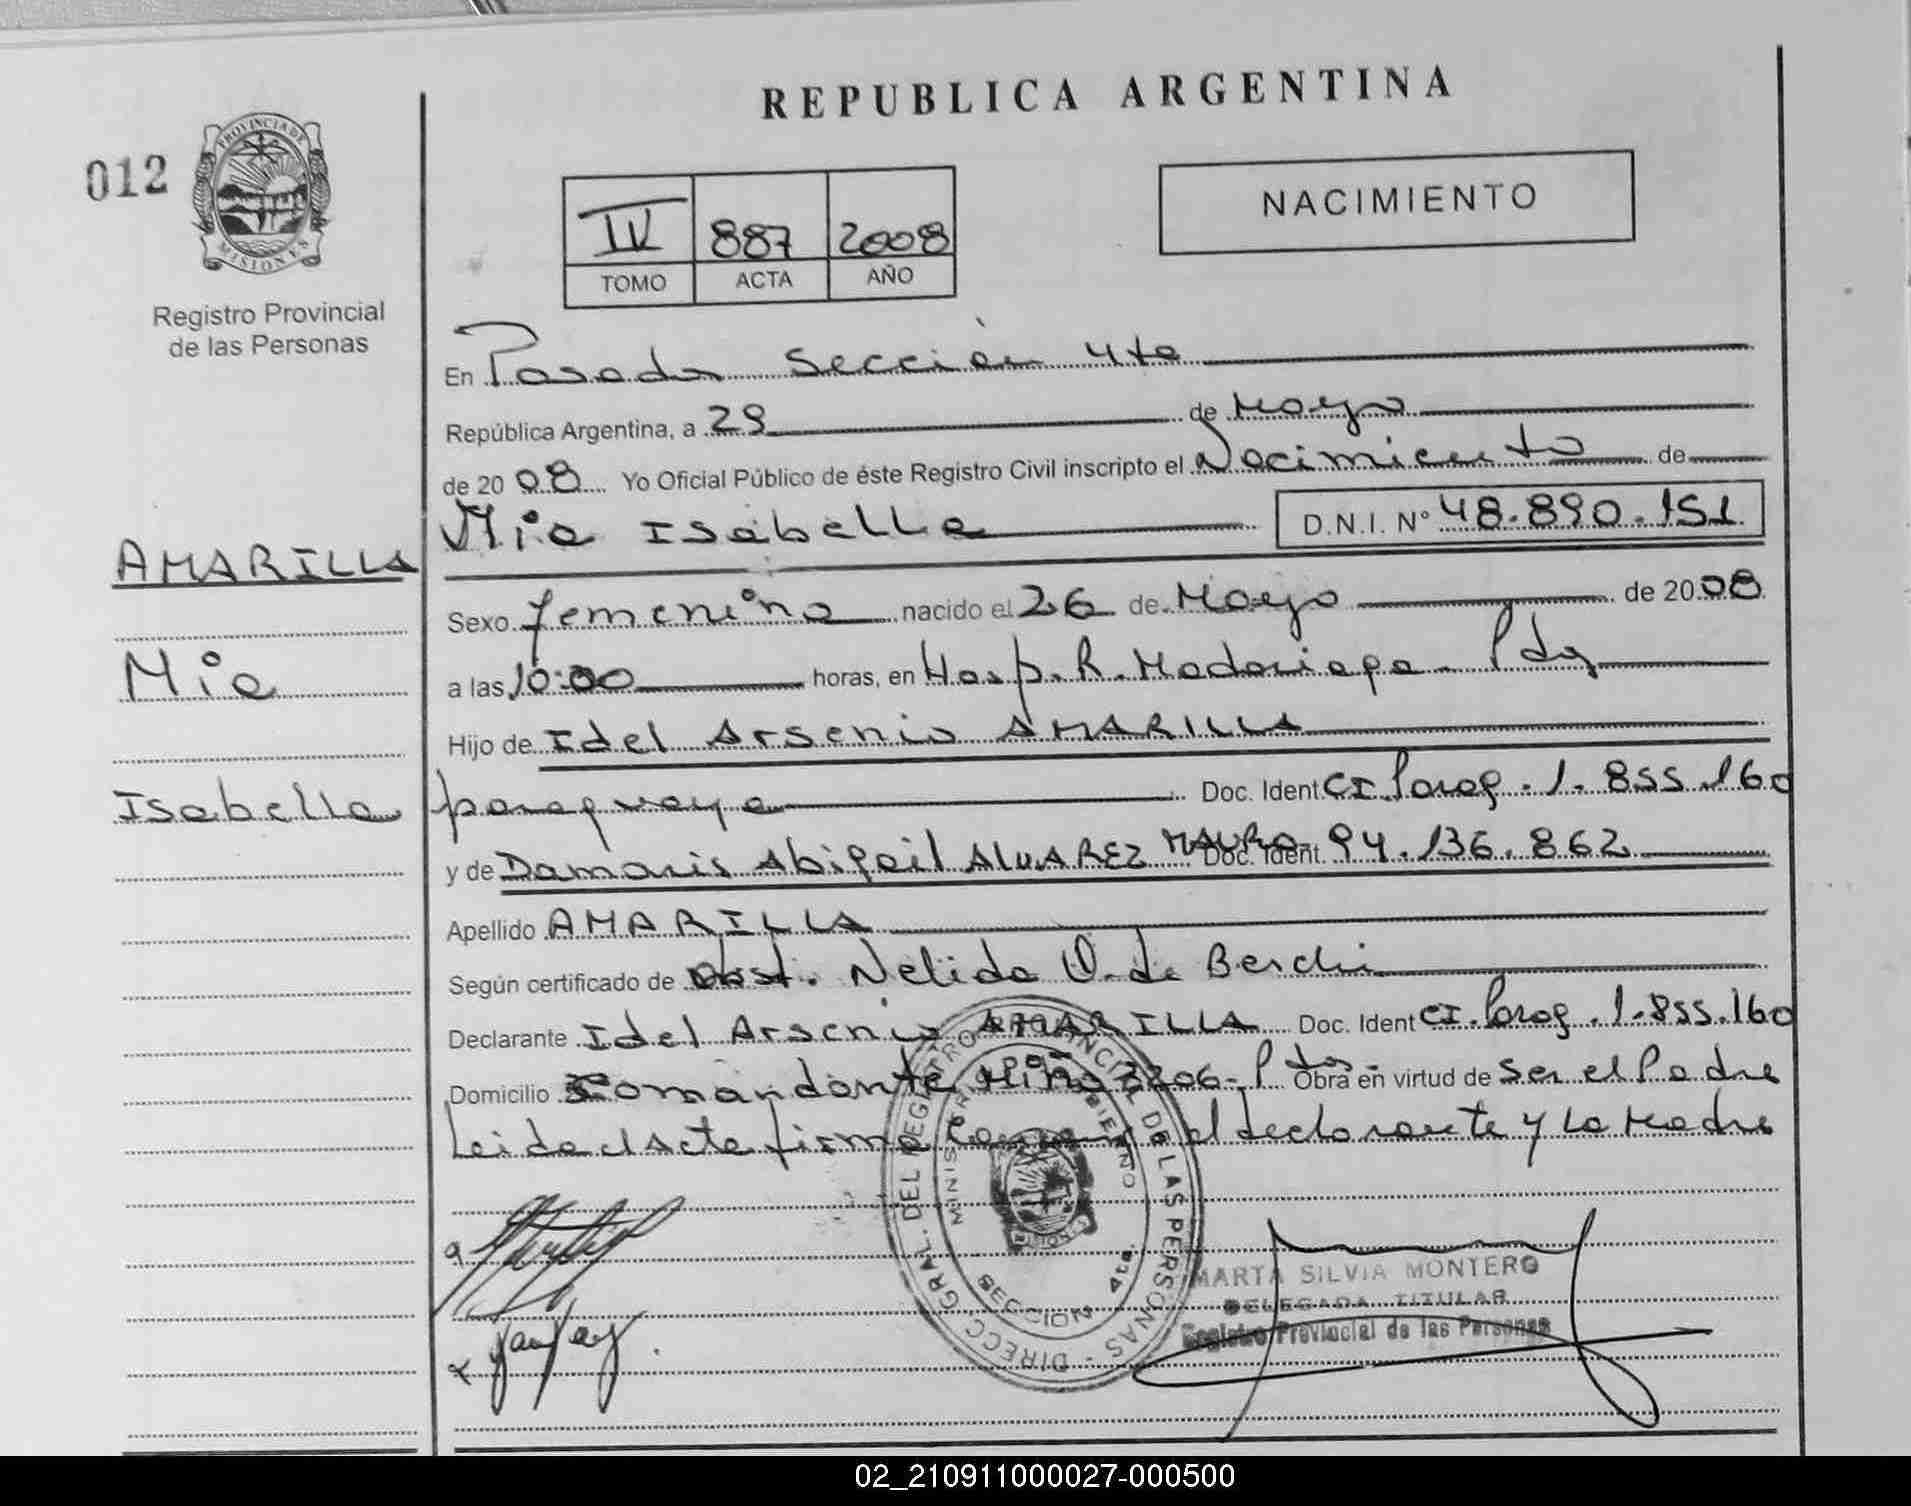 REPUBLICA ARGENTINA
012
PROVINCIA DE
MISIONES
Registro Provincial
de las Personas
IV 887 2008
TOMO ACTA AÑO
NACIMIENTO
En Posadas Sección 4ta
República Argentina, a 29 de Mayo
de 2008 Yo Oficial Público de éste Registro Civil inscripto el Nacimiento de
Mia Isabella D.N.I. N° 48.890.151
AMARILLA
Mia
Isabella
Sexo femenino nacido el 26 de Mayo de 2008
a las 10:00 horas, en Hosp. R. Madariaga - Pdas
Hijo de Idel Arsenio AMARILLA
paraguaya Doc. Ident CI. Parag. 1.855.160
y de Damaris Abigail ALVAREZ MAURO Doc. Ident 94.136.862
Apellido AMARILLA
Según certificado de Obst. Nelida O. de Berchi
Declarante Idel Arsenio AMARILLA Doc. Ident CI. Parag. 1.855.160
Domicilio Comandante Miño 2206- Pdas Obra en virtud de Ser el Padre
Leida el Acta firma el declarante y La Madre
DIRECC. GRAL. DEL REGISTRO PROVINCIAL DE LAS PERSONAS -
SECCION 4ta.
MARTA SILVIA MONTERO
DELEGADA TITULAR
Registro Provincial de las Personas
02_210911000027-000500